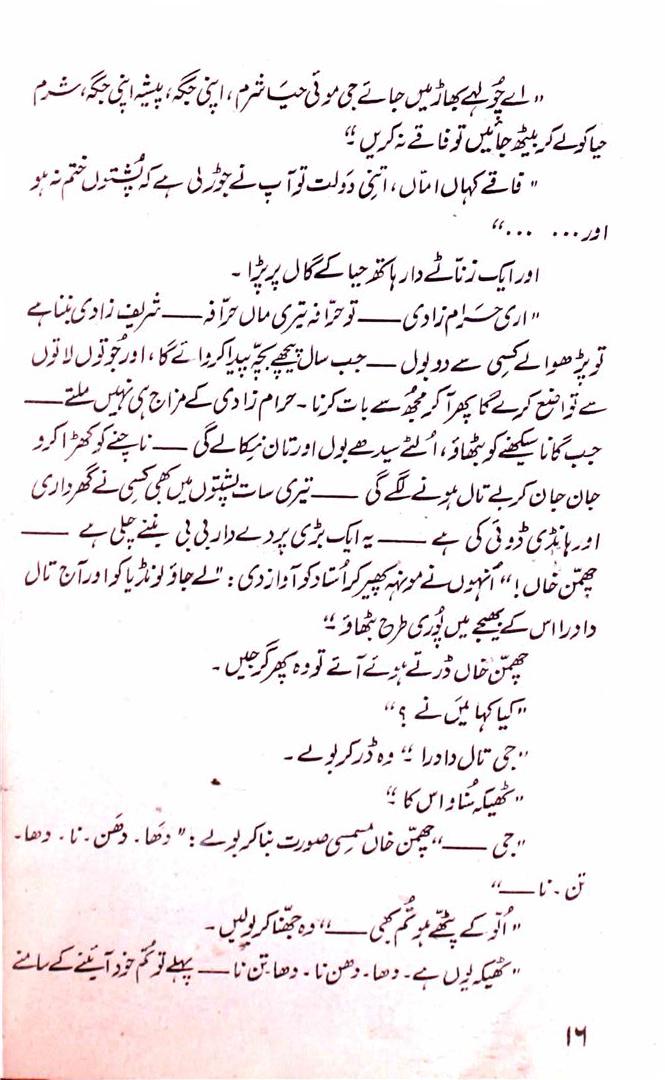 "اے چُولہے بھاڑ میں جائے جی موئی حیا شرم، اپنی جگہ، پیشہ اپنی جگہ، شرم
حیا کو لے کر بیٹھ جائیں تو فاقے نہ کریں۔"
"فاقے کہاں امّاں، اتنی دَولت تو آپ نے جوڑ لی ہے کہ پُشتوں ختم نہ ہو
اور ... ..."
اور ایک زنّاٹے دار ہاتھ حیا کے گال پر پڑا۔
"اری حَرام زادی —— تو حرّافہ تیری ماں حرّافہ —— شریف زادی بننا ہے
تو پڑھوا لے کسی سے دو بول —— جب سال پیچھے بچّہ پیدا کروائے گا، اور جُوتوں لاتوں
سے تواضع کرے گا پھر آ کر مجھ سے بات کرنا۔ حرام زادی کے مزاج ہی نہیں ملتے ——
جب گانا سیکھنے کو بٹھاؤ، اُلٹے سیدھے بول اور تان نِکالے گی —— ناچنے کو کھڑا کرو
جان جان کر بے تال ہونے لگے گی —— تیری سات پشتوں میں بھی کسی نے گھر داری
اور ہانڈی ڈوئی کی ہے —— یہ ایک بڑی پردے دار بی بی بننے چلی ہے ——
چھمّن خاں!" اُنہوں نے مونہہ پھیر کر اُستاد کو آواز دی: "لے جاؤ لونڈیا کو اور آج تال
دادرا اس کے بھیجے میں پُوری طرح بٹھاؤ۔"
چھمّن خاں ڈرتے ہوئے آئے تو وہ پھر گرجیں۔
"کیا کہا میَں نے؟"
"جی تال دادرا۔" وہ ڈر کر بولے۔
"ٹھیکہ سُناؤ اس کا۔"
"جی ——" چھمّن خاں مسمسی صورت بنا کر بولے: "دَھا۔ دھَن۔ نا۔ دھا۔
تن۔ نا ——"
"اُلّو کے پٹھّے ہو تُم بھی ——" وہ جھنّا کر بولیں۔
"ٹھیکہ یُوں ہے۔ دھا۔ دھن نا۔ دھا۔ تن نا —— پہلے تو تُم خود آئینے کے سامنے
۱۶